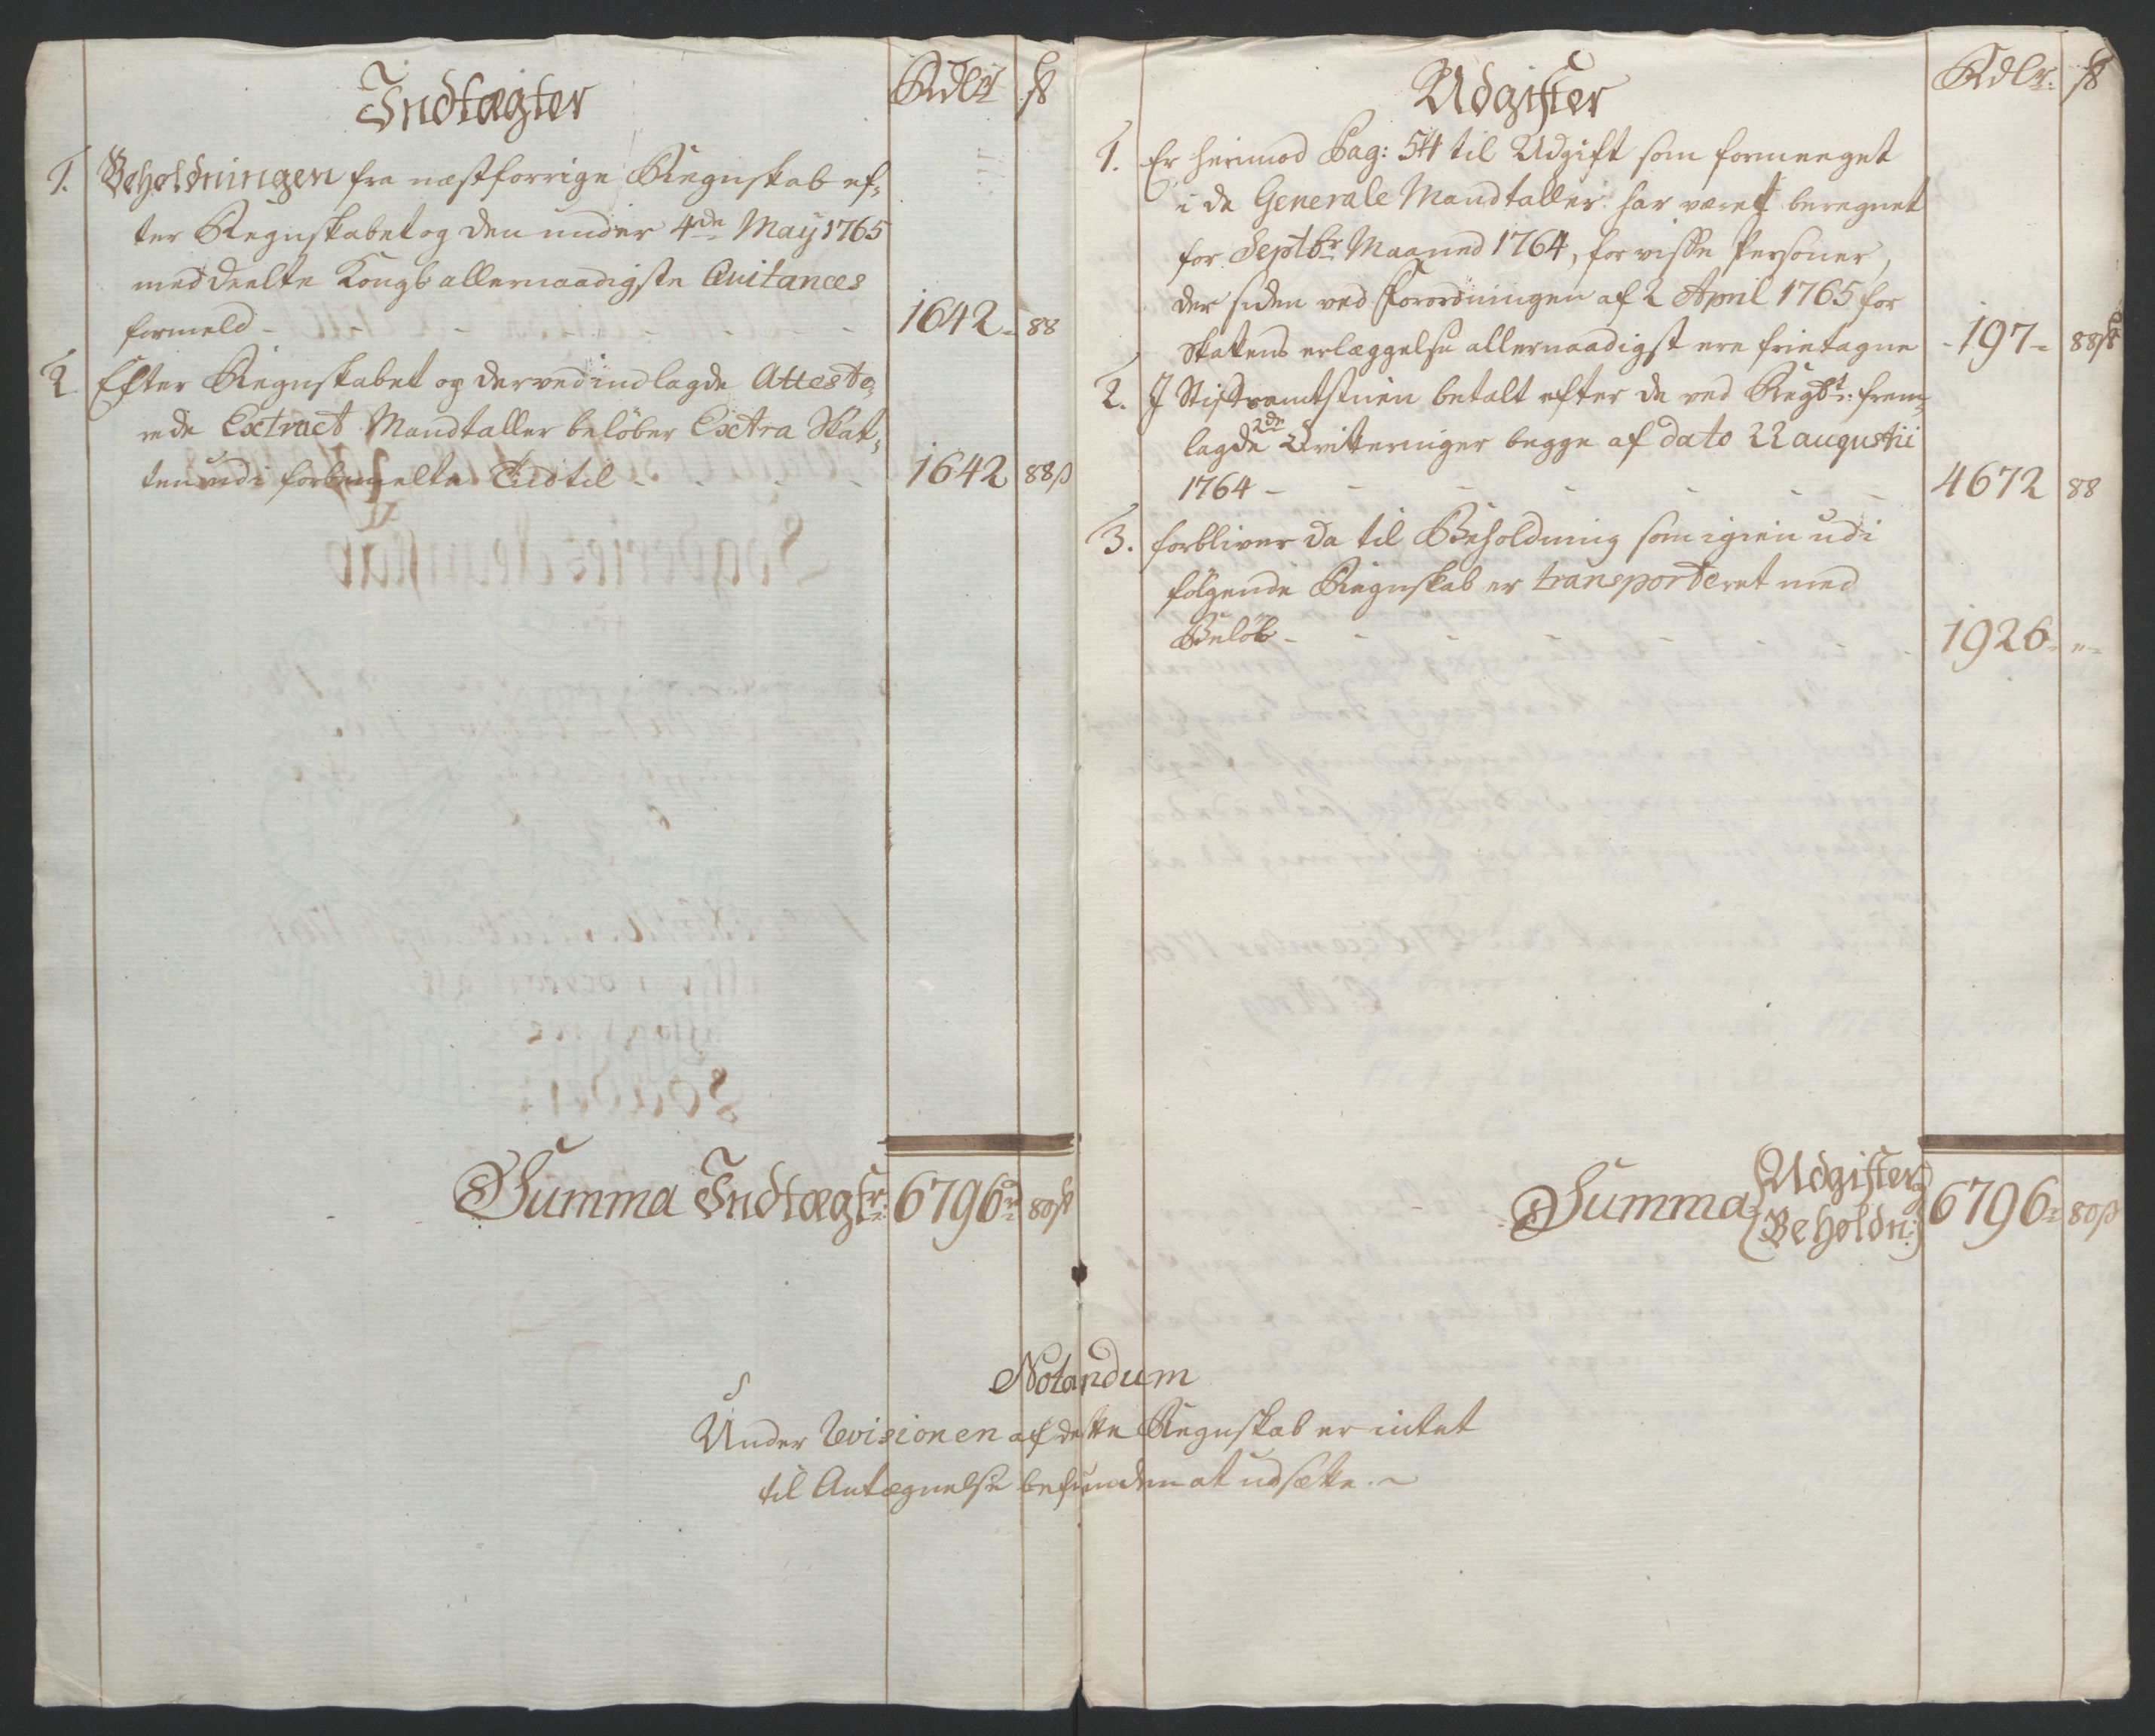 Indtægter
Rdlr ß
1. Beholdningen fra næstforrige Regnskab ef-
ter Regnskabet og den under 4de May 1765
meddeelte Kongl allernaadigste Quitances
formeld - 1642 - 88
2 Efter Regnskabet og derved indlagde Atteste-
rede Extract Mandtaller beløber Extra Skat-
ten udi forbemelte Tid til - 1642 88ß
Summa Indtægtr: 6796r 80ß
Udgifter
Rdlr: ß
1. Er herimod Pag: 54 til Udgift som formeeget
i de Generale Mandtaller har været beregnet
for Septbr Maaned 1764, for visse Personer,
der siden ved Forordningen af 2 April 1765 for
Skattens erlæggelse allernaadigst ere frietagne - 197 - 88ß
2. I Stiftamtstuen betalt efter de ved Regbt: frem-
lagde 2de Qvitteringer begge af dato 22 augustii
1764 - 4672 88
3. forbliver da til Beholdning som igien udi
følgende Regnskab er transporteret med
Beløb - 1926 - "-
Summa Udgifter og Beholdn: 6796 - 80ß
Notandum
Under Revisionen af dette Regnskab er intet
til Antegnelse befunden at udsætte. ~